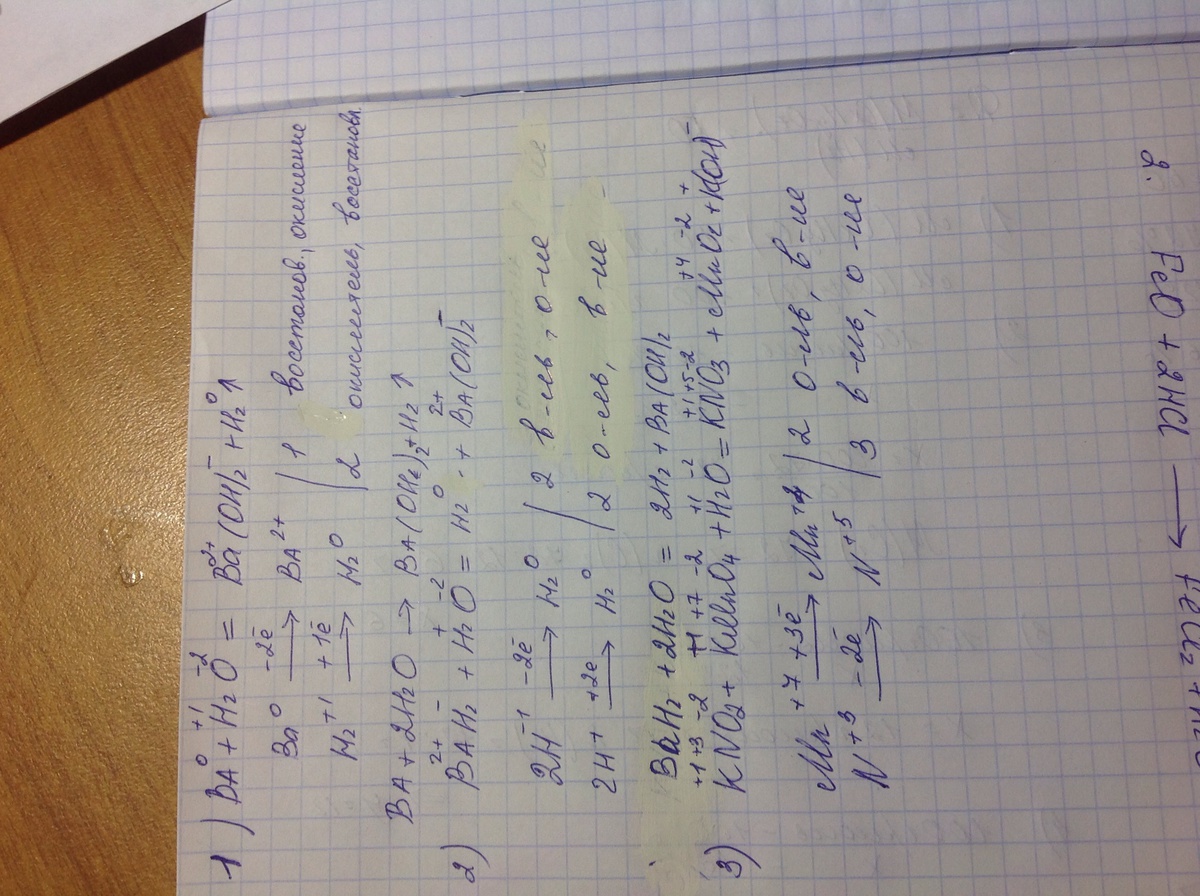 1) Ba⁰ + H₂⁺¹O⁻² = Ba²⁺(OH)₂⁻ + H₂⁰↑
Ba⁰ -2ē → Ba²⁺ | 1 восстанов., окисление
H₂⁺¹ +1ē → H₂⁰ | 2 окислитель, восстановл
Ba + 2H₂O → Ba(OH)₂ + H₂↑
2) Ba²⁺H₂⁻ + H₂⁺O⁻² = H₂⁰ + Ba²⁺(OH)₂⁻
2H⁻¹ -2ē → H₂⁰ | 2 в-ль, о-ие
2H⁺ +2e → H₂⁰ | 2 о-ль, в-ие
BaH₂ + 2H₂O = 2H₂ + Ba(OH)₂
3) K⁺¹N⁺³O₂⁻² + K⁺¹Mn⁺⁷O₄⁻² + H₂⁺¹O⁻² = K⁺¹N⁺⁵O₃⁻² + Mn⁺⁴O₂⁻² + K⁺(OH)⁻
Mn⁺⁷ +3ē → Mn⁺⁴ | 2 о-ль, в-ие
N⁺³ -2ē → N⁺⁵ | 3 в-ль, о-ие
2.
FeO + 2HCl → FeCl₂ + H₂O